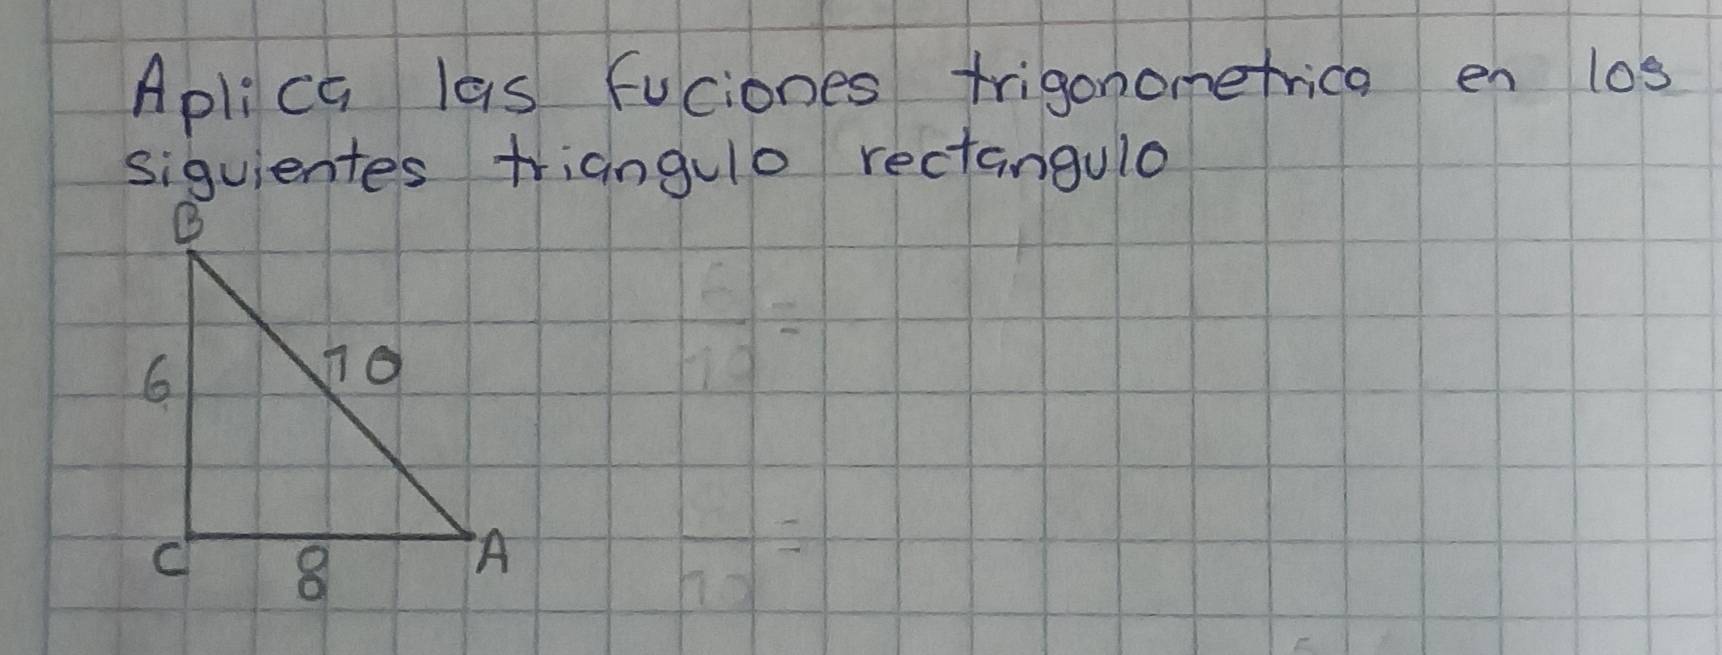 Aplica las fuciones trigonometrica en los
siguientes triangulo rectangulo
B
6
10
C
8
A